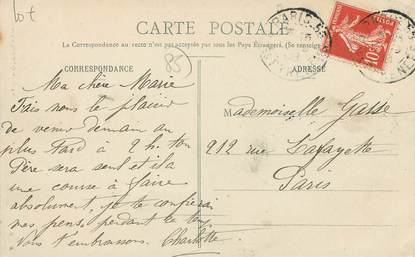 lot
CARTE POSTALE
La Correspondance au recto n'est pas acceptée par tous les Pays Étrangers. (Se renseigner
CORRESPONDANCE
85
ADRESSE
PARIS
10
Ma chère Marie
Fais nous le plaisir
de venir demain au
plus tard à 2 h. ton
Père sera seul et il a
une course à faire
absolument, je te confierai
mes pens. pendant ce temps.
Nous t'embrassons. Charlotte
Mademoiselle Gasse
212 rue Lafayette
Paris